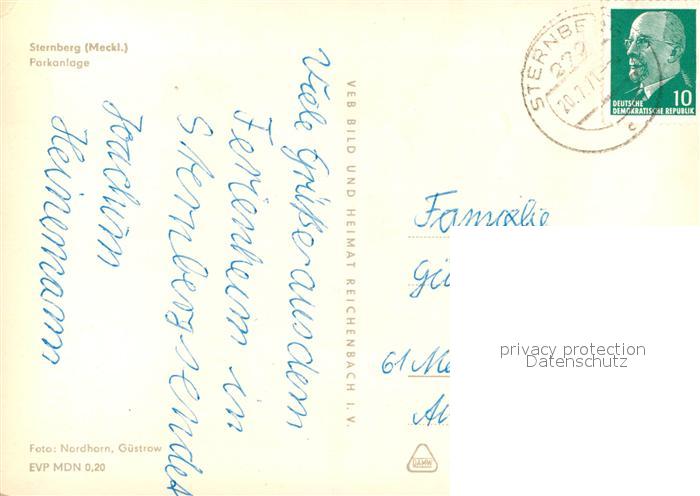 Sternberg (Meckl.)
Parkanlage
Viele Grüße aus dem
Ferienheim in
Sternberg sendet
Joachim
Heinemann
VEB BILD UND HEIMAT REICHENBACH I. V.
Foto: Nordhorn, Güstrow
EVP MDN 0,20
DAMW
STERNBE
272
20.7.71
c
10
DEUTSCHE
DEMOKRATISCHE REPUBLIK
Familie
Gü
61 Me
privacy protection
Datenschutz